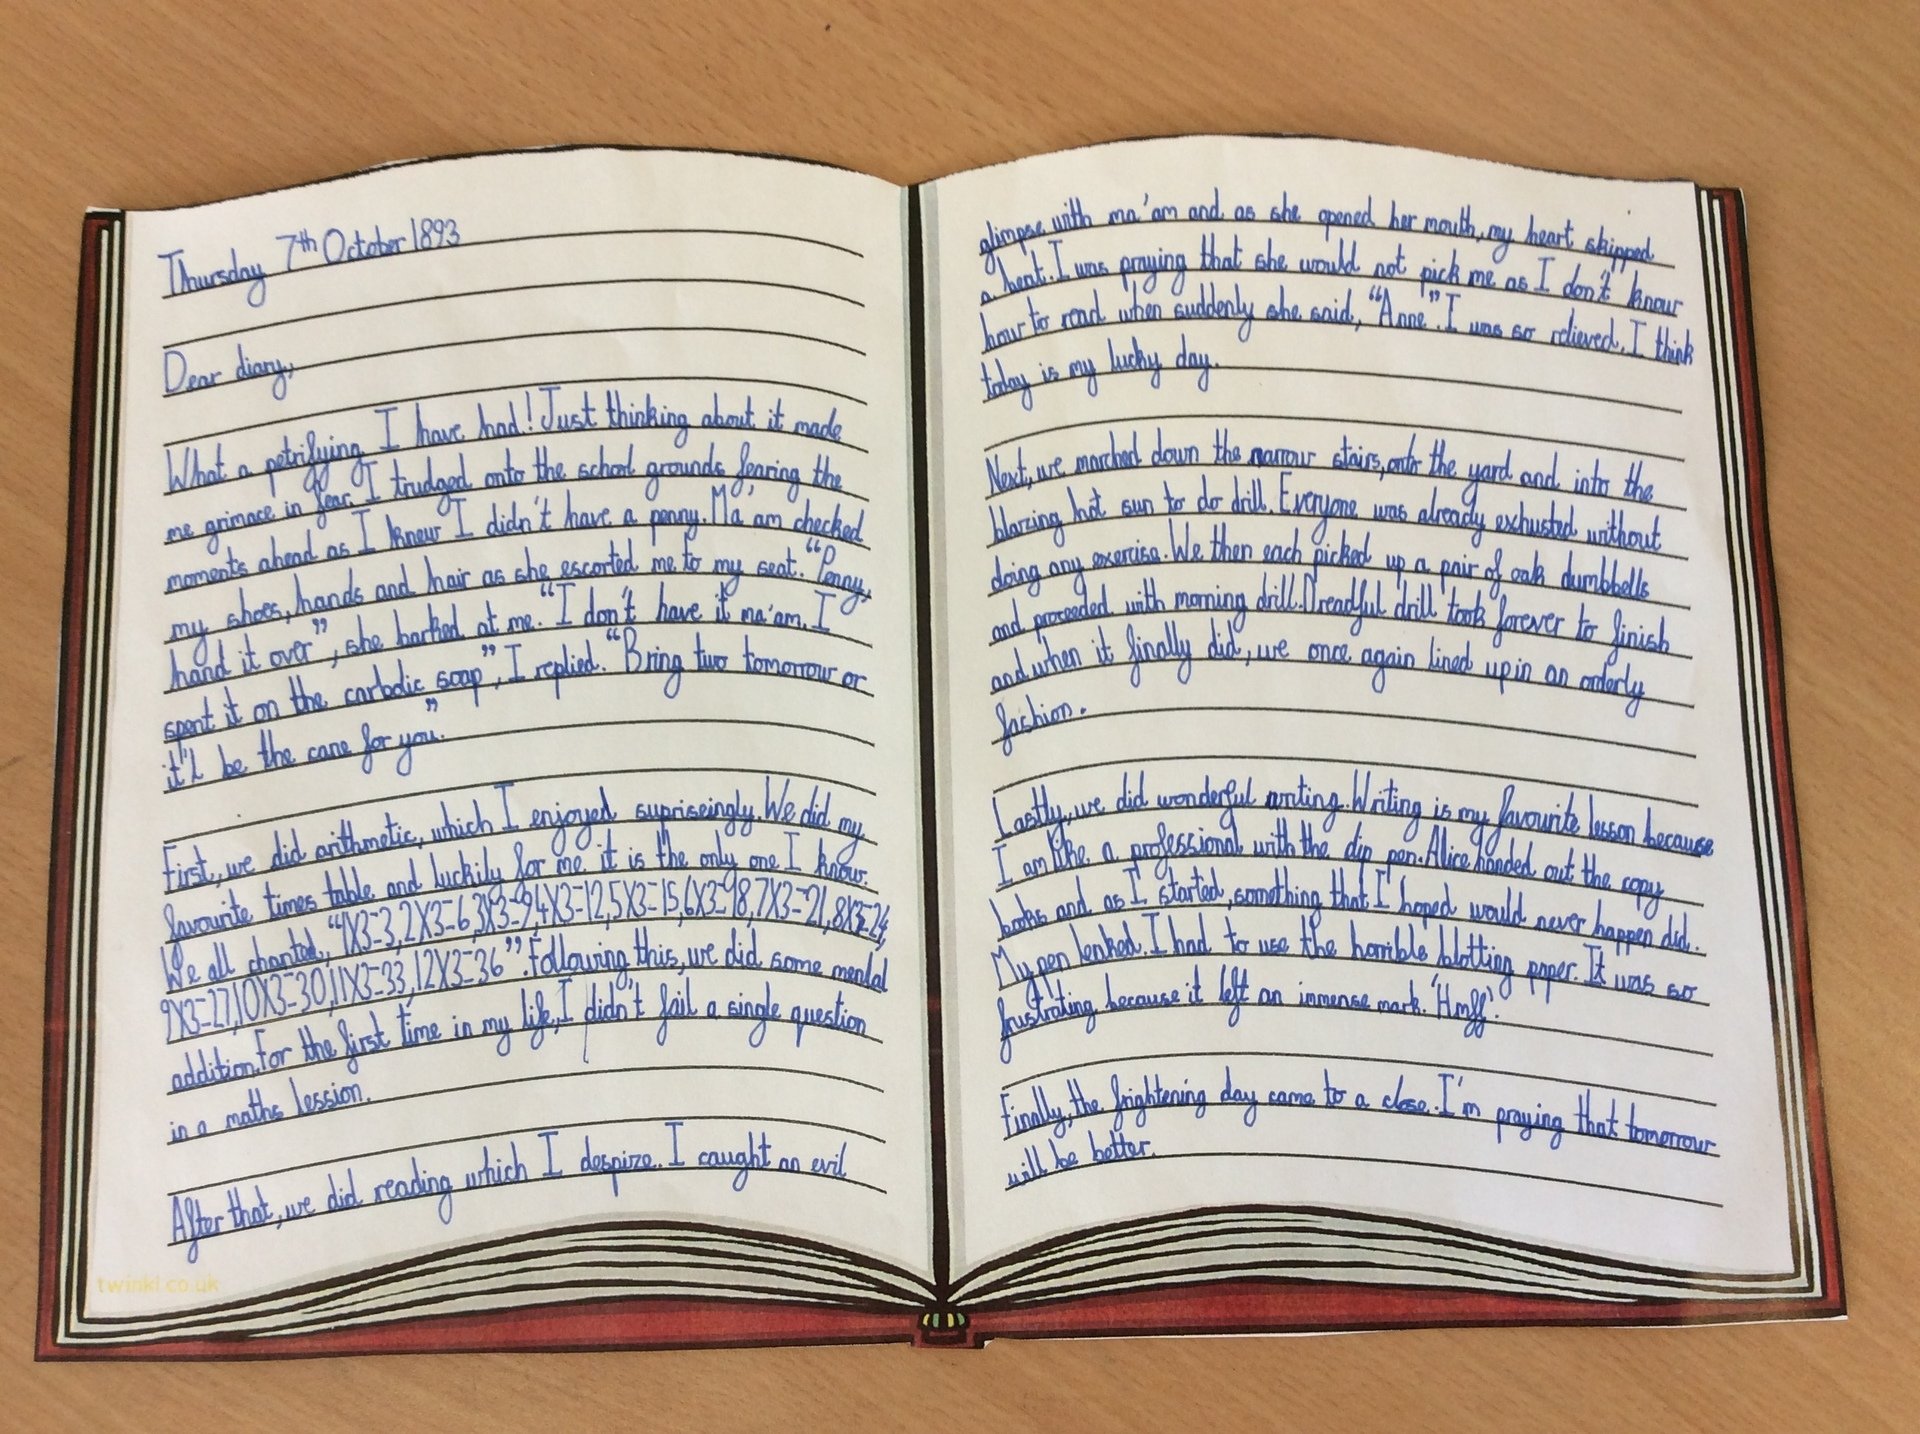 Thursday 7th October 1893
Dear diary,
What a petrifying I have had! Just thinking about it made
me grimace in fear. I trudged onto the school grounds fearing the
moments ahead as I knew I didn't have a penny. Ma'am checked
my shoes, hands and hair as she escorted me to my seat. "Penny,
hand it over", she barked at me. "I don't have it ma'am. I
spent it on the carbolic soap", I replied. "Bring two tomorrow or
it'l be the cane for you."
First, we did arithmetic, which I enjoyed supriseingly. We did my
favourite times table and luckily for me it is the only one I know.
We all chanted, "1X3=3,2X3=6,3X3=9,4X3=12,5X3=15,6X3=18,7X3=21,8X3=24,
9X3=27,10X3=30,11X3=33,12X3=36". Following this, we did some mental
addition. For the first time in my life, I didn't fail a single question
in a maths lession.
After that, we did reading which I despize. I caught an evil
twinkl.co.uk
glimpse with ma'am and as she opened her mouth, my heart skipped
a beat. I was praying that she would not pick me as I don't know
how to read when suddenly she said, "Anne". I was so relieved. I think
today is my lucky day.
Next, we marched down the narrow stairs, onto the yard and into the
blazing hot sun to do drill. Everyone was already exhusted without
doing any exercise. We then each picked up a pair of oak dumbbells
and proceeded with morning drill. Dreadful drill took forever to finish
and when it finally did, we once again lined up in an orderly
fashion.
Lastly, we did wonderful writing. Writing is my favourite lesson because
I am like a professional with the dip pen. Alice handed out the copy
books and as I started, something that I hoped would never happen did.
My pen leaked. I had to use the horrible blotting paper. It was so
frustrating because it left an immense mark. 'Hmff'.
Finally, the frightening day came to a close. I'm praying that tomorrow
will be better.